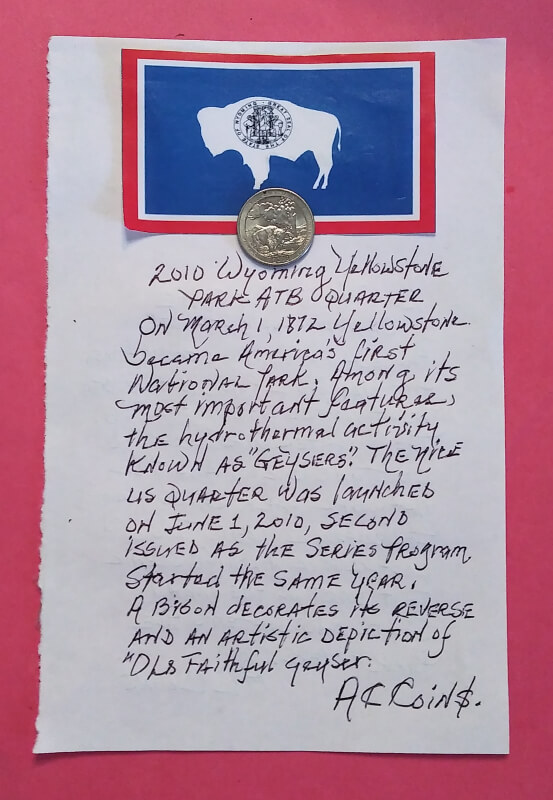 GREAT SEAL OF THE STATE OF WYOMING
2010 Wyoming Yellowstone
PARK ATB QUARTER
ON March 1, 1872 Yellowstone
became America's first
National Park. Among its
most important features,
the hydrothermal activity
KNOWN AS "GEYSERS". The NICE
US QUARTER was launched
ON JUNE 1, 2010, SECOND
ISSUED AS the SERIES Program
Started the SAME YEAR.
A BISON decorates its REVERSE
AND AN ARTISTIC DEPICTION of
"OLD FAITHFUL geyser.
A¢ Coin$.